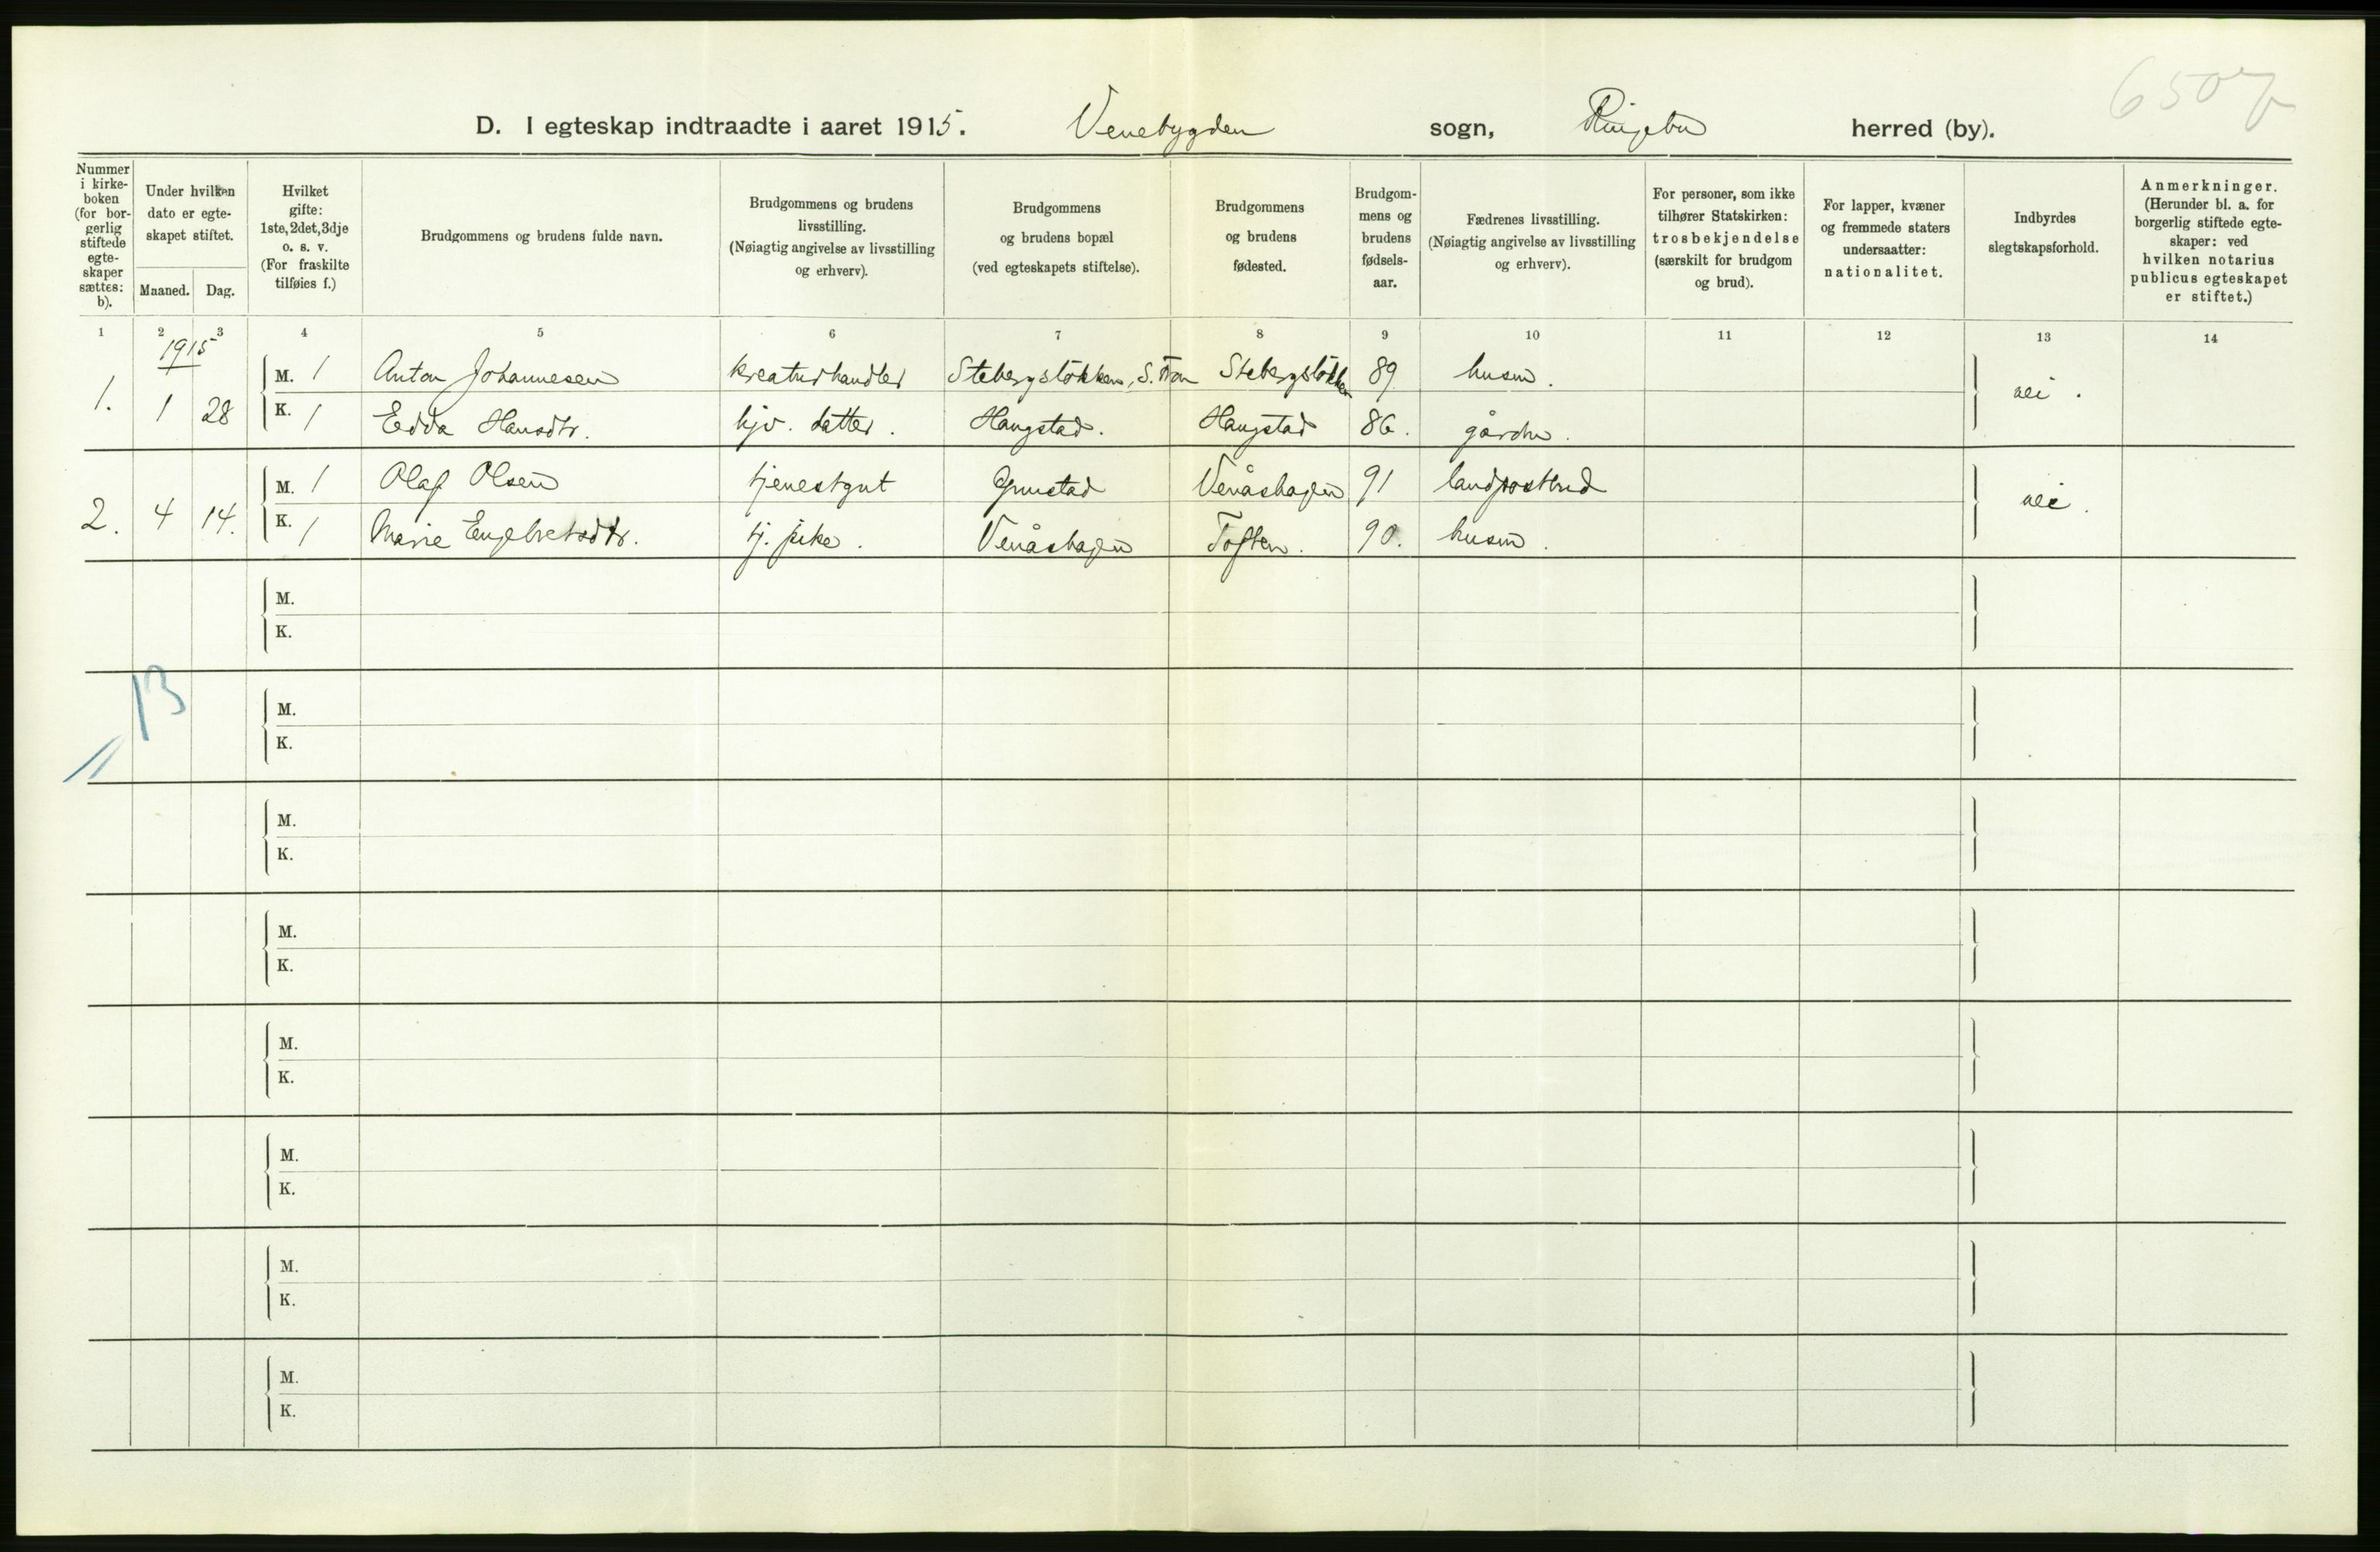 6507
D. I egteskap indtraadte i aaret 1915. Venebygden sogn, Ringebu herred (by).
Nummer i kirkeboken (for borgerlig stiftede egteskaper sættes: b).
Under hvilken dato er egteskapet stiftet.
Maaned. Dag.
Hvilket gifte: 1ste, 2det, 3dje o. s. v. (For fraskilte tilføies f.)
Brudgommens og brudens fulde navn.
Brudgommens og brudens livsstilling. (Nøiagtig angivelse av livsstilling og erhverv).
Brudgommens og brudens bopæl (ved egteskapets stiftelse).
Brudgommens og brudens fødested.
Brudgommens og brudens fødselsaar.
Fædrenes livsstilling. (Nøiagtig angivelse av livsstilling og erhverv).
For personer, som ikke tilhører Statskirken: trosbekjendelse (særskilt for brudgom og brud).
For lapper, kvæner og fremmede staters undersaatter: nationalitet.
Indbyrdes slegtskapsforhold.
Anmerkninger. (Herunder bl. a. for borgerlig stiftede egteskaper: ved hvilken notarius publicus egteskapet er stiftet.)
1 2 3 4 5 6 7 8 9 10 11 12 13 14
1915
1. 1 28 M. 1 Anton Johannesen kreaturhandler Stebergsløkken, S. Fron Stebergsløkken 89 husm. nei.
K. 1 Edda Hansdtr. hjv. datter. Haugstad. Haugstad 86. gårdbr.
2. 4 14. M. 1 Olaf Olsen tjenestgut Venåshagen 91 landpostbud nei.
K. 1 Marie Engebretsdtr. tj. pike. Venåshagen Toften. 90. husm.
M.
K.
13
M.
K.
M.
K.
M.
K.
M.
K.
M.
K.
M.
K.
M.
K.